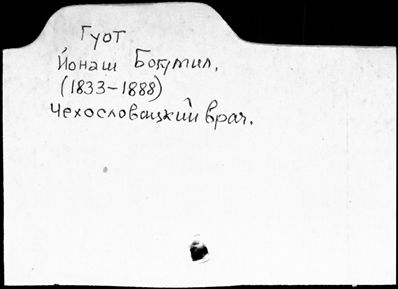 Гуот
Йонаш Богумил.
(1833-1888)
Чехословацкий врач.